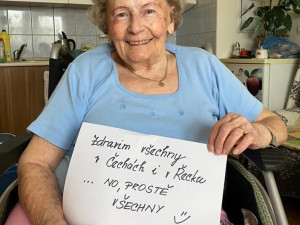 Zdravím všechny
v Čechách i v Řecku
... NO, PROSTĚ
VŠECHNY